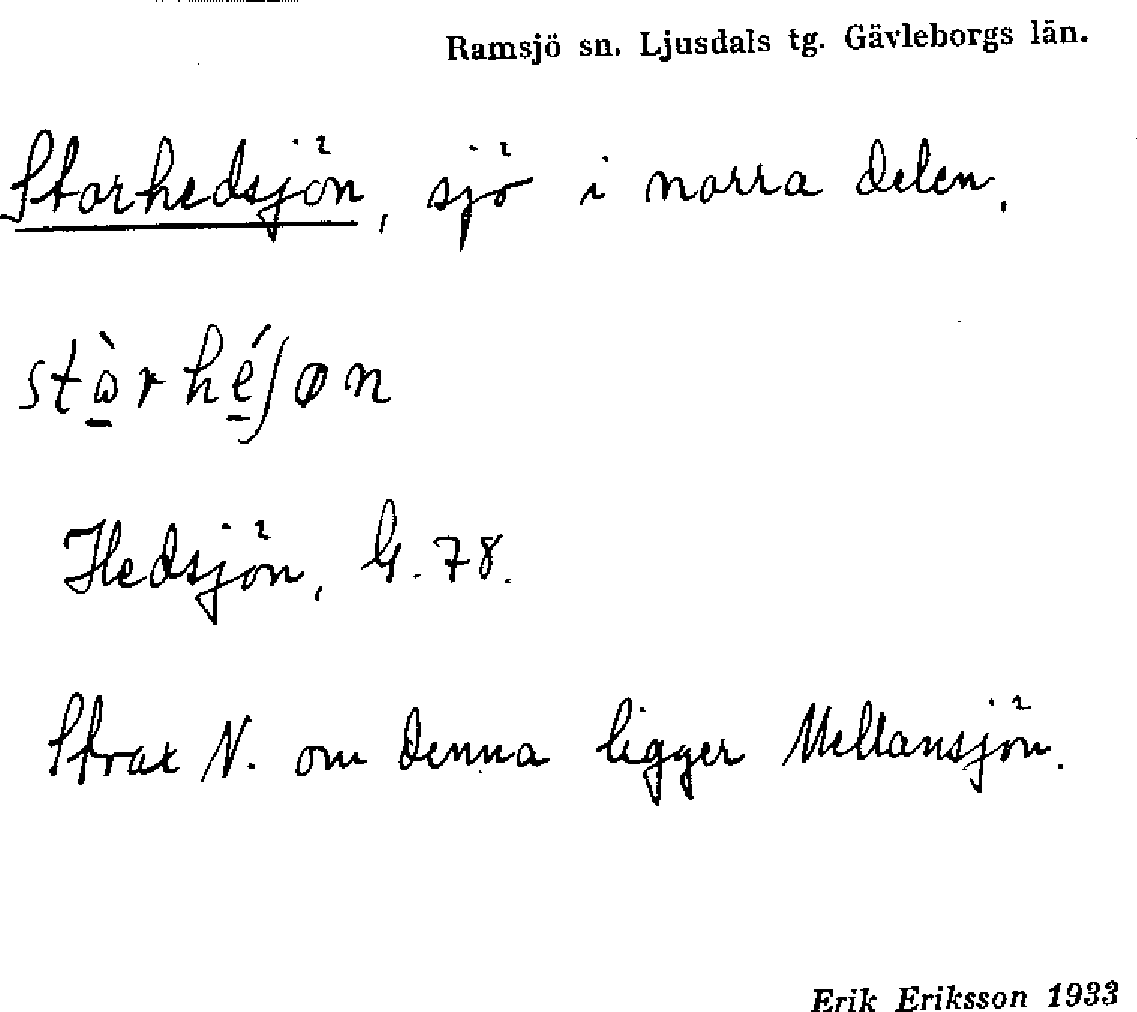 Ramsjö sn. Ljusdals tg. Gävleborgs län.
Storhedsjön, sjö i norra delen.
stὼ̱rhé̱ʃøn
Hedsjön, G. 78.
Strax N. om denna ligger Mellansjön.
Erik Eriksson 1933